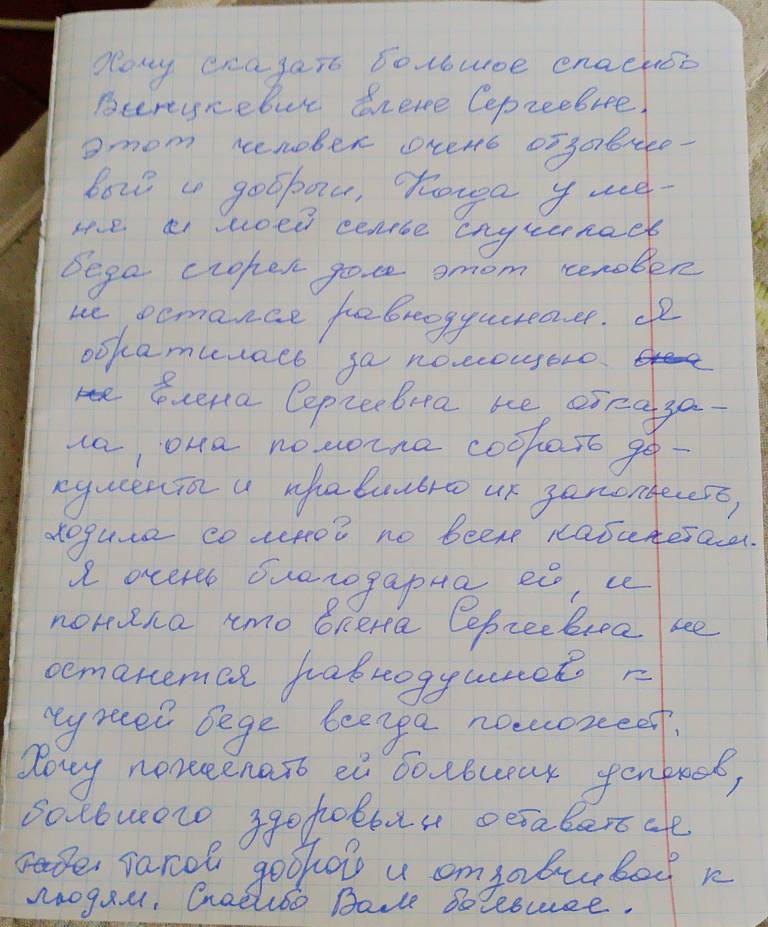 Хочу сказать большое спасибо
Винцкевич Елене Сергеевне.
этот человек очень отзывчи-
вый и добрый, Когда у ме-
ня и моей семье случилась
беда сгорел дом этот человек
не остался равнодушным. Я
обратилась за помощью. она
не Елена Сергеевна не отказа-
ла, она помогла собрать до-
кументы и правильно их заполнить,
ходила со мной по всем кабинетам.
Я очень благодарна ей, и
поняла что Елена Сергеевна не
останется равнодушной к
чужой беде всегда поможет.
Хочу пожелать ей больших успехов,
большого здоровья и оставаться
такой доброй и отзывчивой к
людям. Спасибо Вам большое.